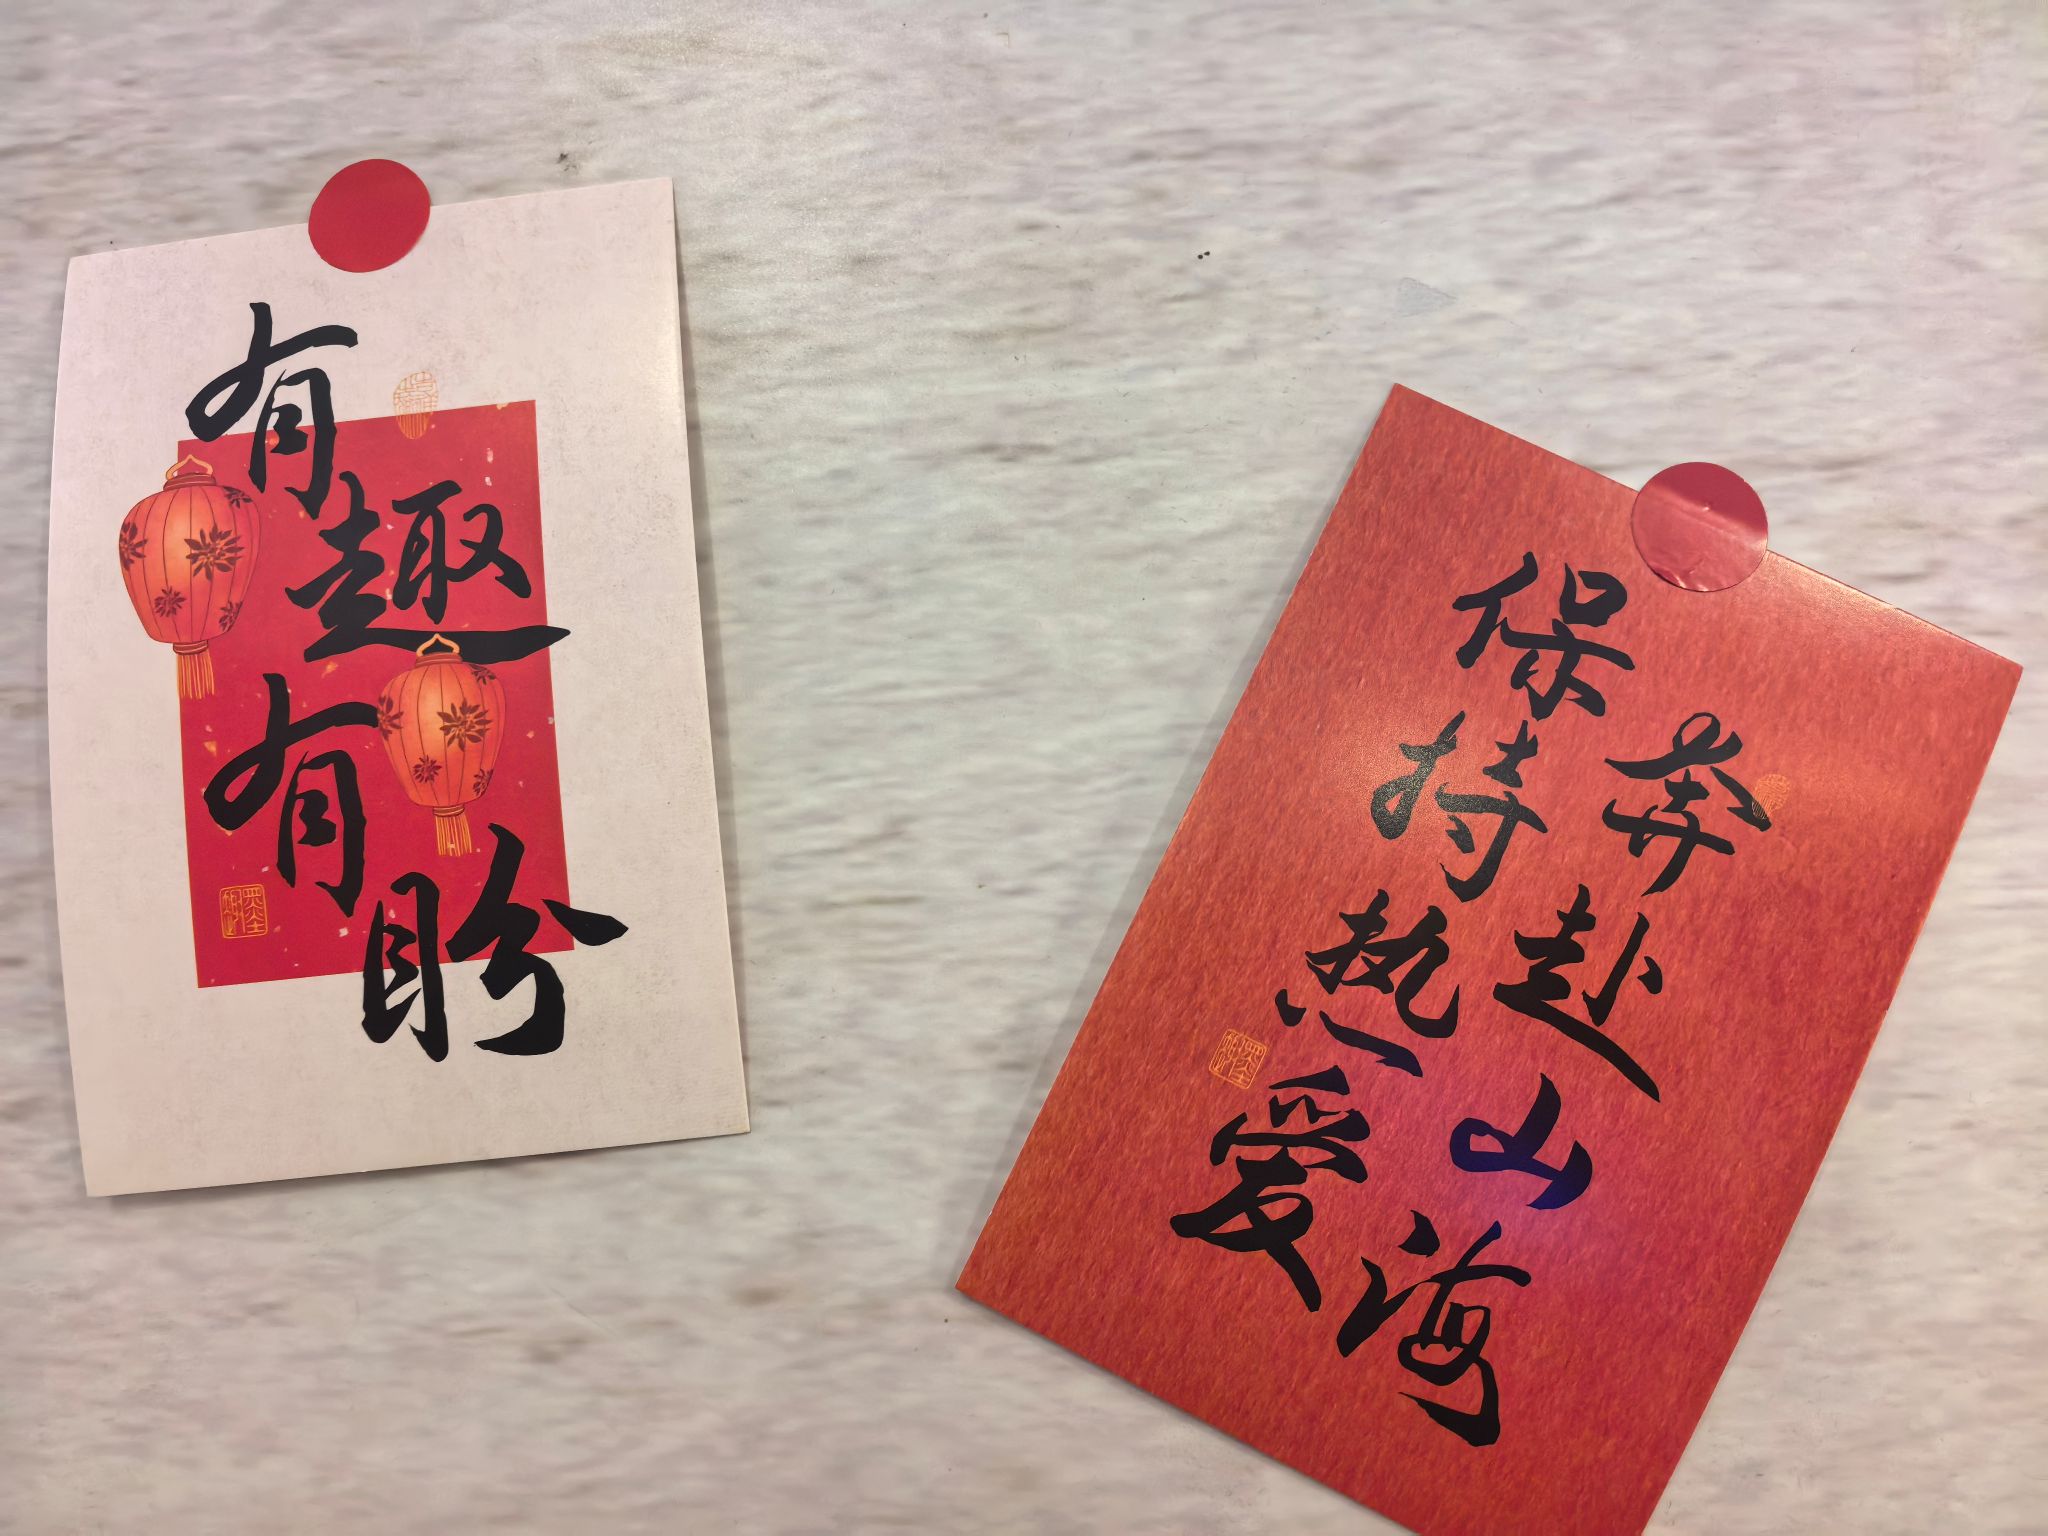 有趣有盼
保持热爱
奔赴山海